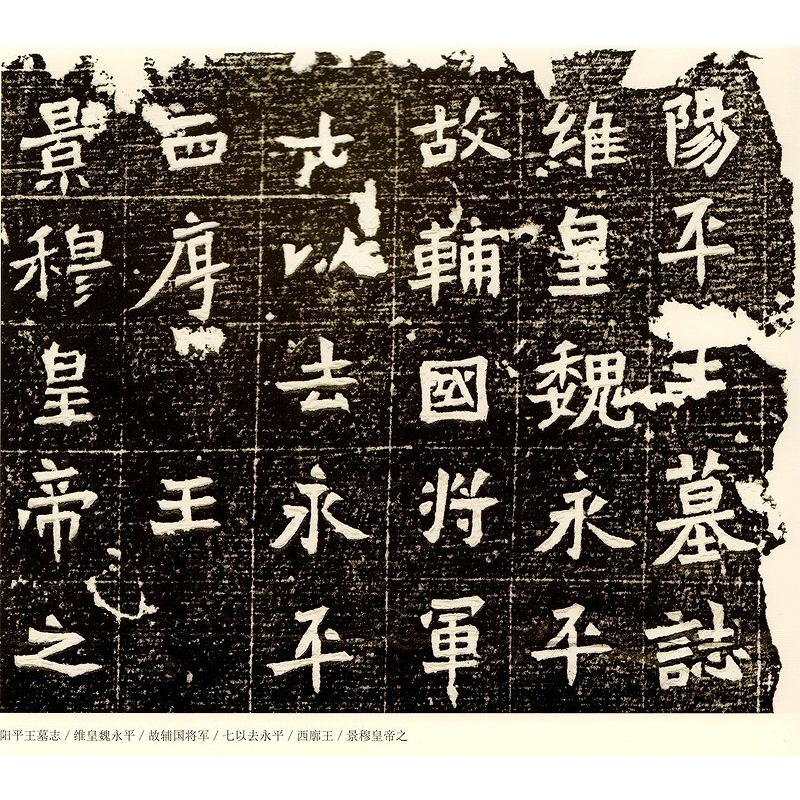 陽平王墓誌
維皇魏永平
故輔國将軍
七以去永平
西 王
景穆皇帝之
阳平王墓志 / 维皇魏永平 / 故辅国将军 / 七以去永平 / 西廓王 / 景穆皇帝之